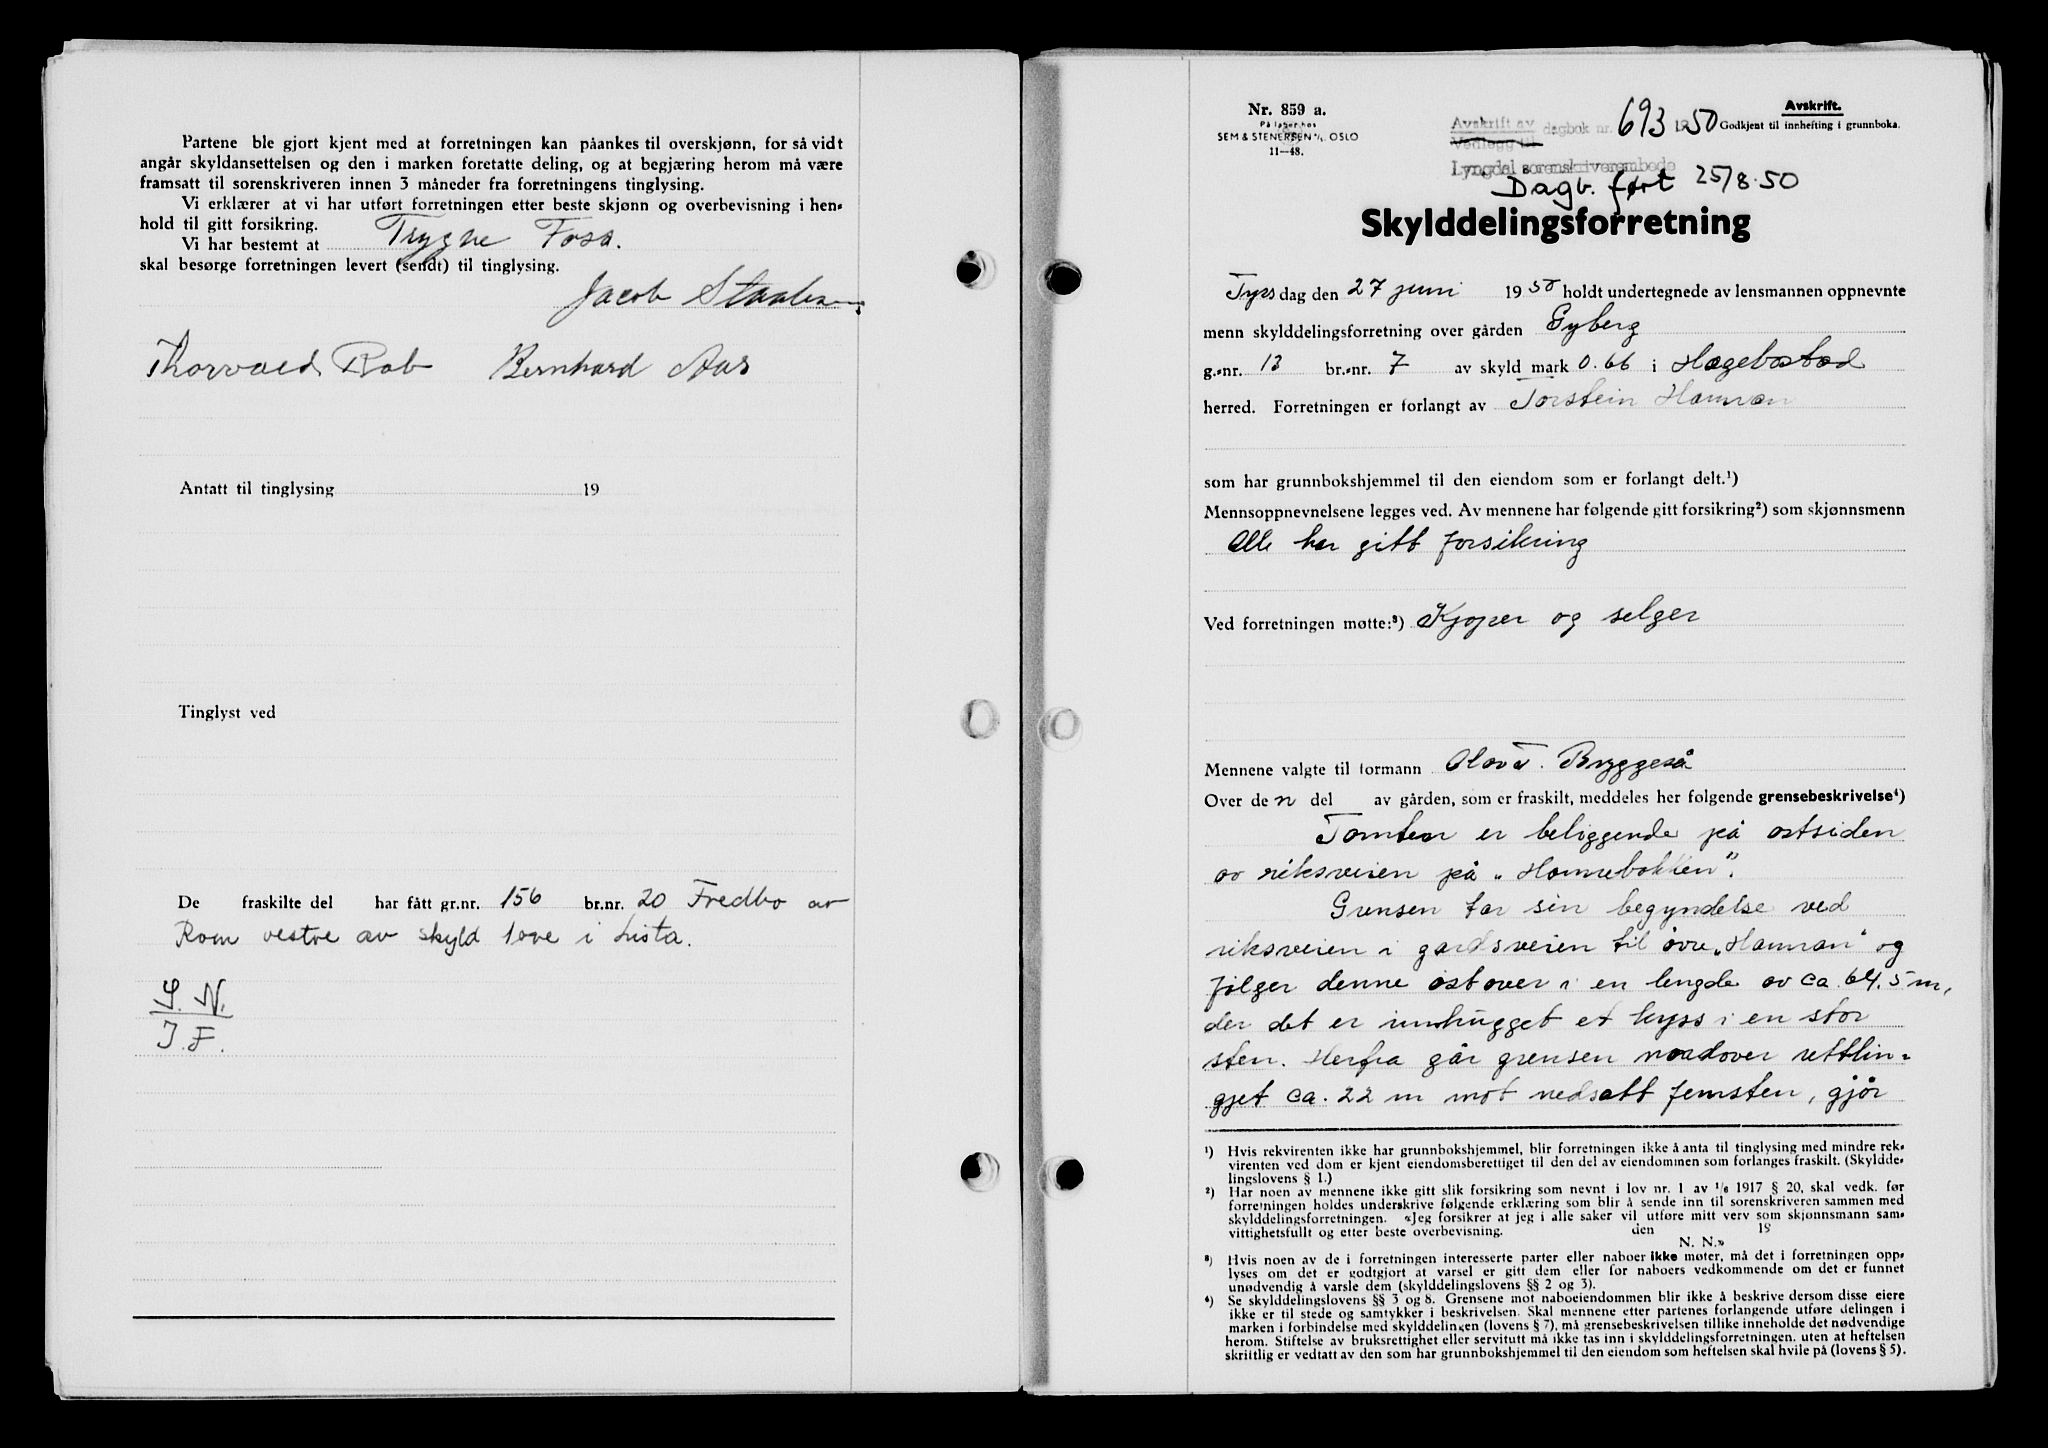 Partene ble gjort kjent med at forretningen kan påankes til overskjønn, for så vidt
angår skyldansettelsen og den i marken foretatte deling, og at begjæring herom må være
framsatt til sorenskriveren innen 3 måneder fra forretningens tinglysing.
Vi erklærer at vi har utført forretningen etter beste skjønn og overbevisning i hen-
hold til gitt forsikring.
Vi har bestemt at Trygve Foss.
skal besørge forretningen levert (sendt) til tinglysing.
Jacob
Thorvald Rob Bernhard Aas
Antatt til tinglysing 19
Tinglyst ved
De fraskilte del har fått gr.nr. 156 br.nr. 20 Fredbo av
Rom vestre av skyld 1 øre i Lista.
S. N.
J. F.
Nr. 859 a.
På lager hos
SEM & STENERSEN A/S, OSLO
11—48.
Avskrift.
Avskrift av dagbok nr. 693 1950 Godkjent til innhefting i grunnboka.
Vedlegg til
Lyngdal sorenskriverembede
Dagb. ført 25/8-50
Skylddelingsforretning
Tyrsdag den 27 juni 1950 holdt undertegnede av lensmannen oppnevnte
menn skylddelingsforretning over gården Gyberg
g.-nr. 13 br.-nr. 7 av skyld mark 0.66 i Hægebostad
herred. Forretningen er forlangt av Torstein Hamran
som har grunnbokshjemmel til den eiendom som er forlangt delt.¹)
Mennsoppnevnelsene legges ved. Av mennene har følgende gitt forsikring²) som skjønnsmenn
Alle har gitt forsikring
Ved forretningen møtte:³) Kjøper og selger
Mennene valgte til formann Olav T. Bryggeså
Over den del av gården, som er fraskilt, meddeles her følgende grensebeskrivelse⁴)
Tomten er beliggende på østsiden
av riksveien på „Homnebakken".
Grensen tar sin begyndelse ved
riksveien i gardsveien til øvre „Hamran" og
følger denne østover i en lengde av ca. 64,5 m,
der det er innhugget et kryss i en stor
sten. Herfra går grensen nordover rettlin-
gjet ca. 22 m mot nedsatt femsten, gjør
¹) Hvis rekvirenten ikke har grunnbokshjemmel, blir forretningen ikke å anta til tinglysing med mindre rek-
virenten ved dom er kjent eiendomsberettiget til den del av eiendommen som forlanges fraskilt. (Skyldde-
lingslovens § 1.)
²) Har noen av mennene ikke gitt slik forsikring som nevnt i lov nr. 1 av 1/6 1917 § 20, skal vedk. før
forretningen holdes underskrive følgende erklæring som blir å sende inn til sorenskriveren sammen med
skylddelingsforretningen. «Jeg forsikrer at jeg i alle saker vil utføre mitt verv som skjønnsmann sam-
vittighetsfullt og etter beste overbevisning. den 19
N. N.»
³) Hvis noen av de i forretningen interesserte parter eller naboer ikke møter, må det i forretningen opp-
lyses om det er godtgjort at varsel er gitt dem eller for naboers vedkommende om det er funnet
unødvendig å varsle dem (skylddelingslovens §§ 2 og 3).
⁴) Se skylddelingslovens §§ 3 og 8. Grensene mot naboeiendommen blir ikke å beskrive dersom disse eiere
ikke er til stede og samtykker i beskrivelsen. Skal mennene etter partenes forlangende utføre delingen i
marken i forbindelse med skylddelingen (lovens § 7), må grensebeskrivelsen tillike inneholde det nødvendige
herom. Stiftelse av bruksrettighet eller servitutt må ikke tas inn i skylddelingsforretningen, uten at heftelsen
skriftlig er vedtatt av den som har grunnbokshjemmel til den eiendom som heftelsen skal hvile på (lovens § 5).